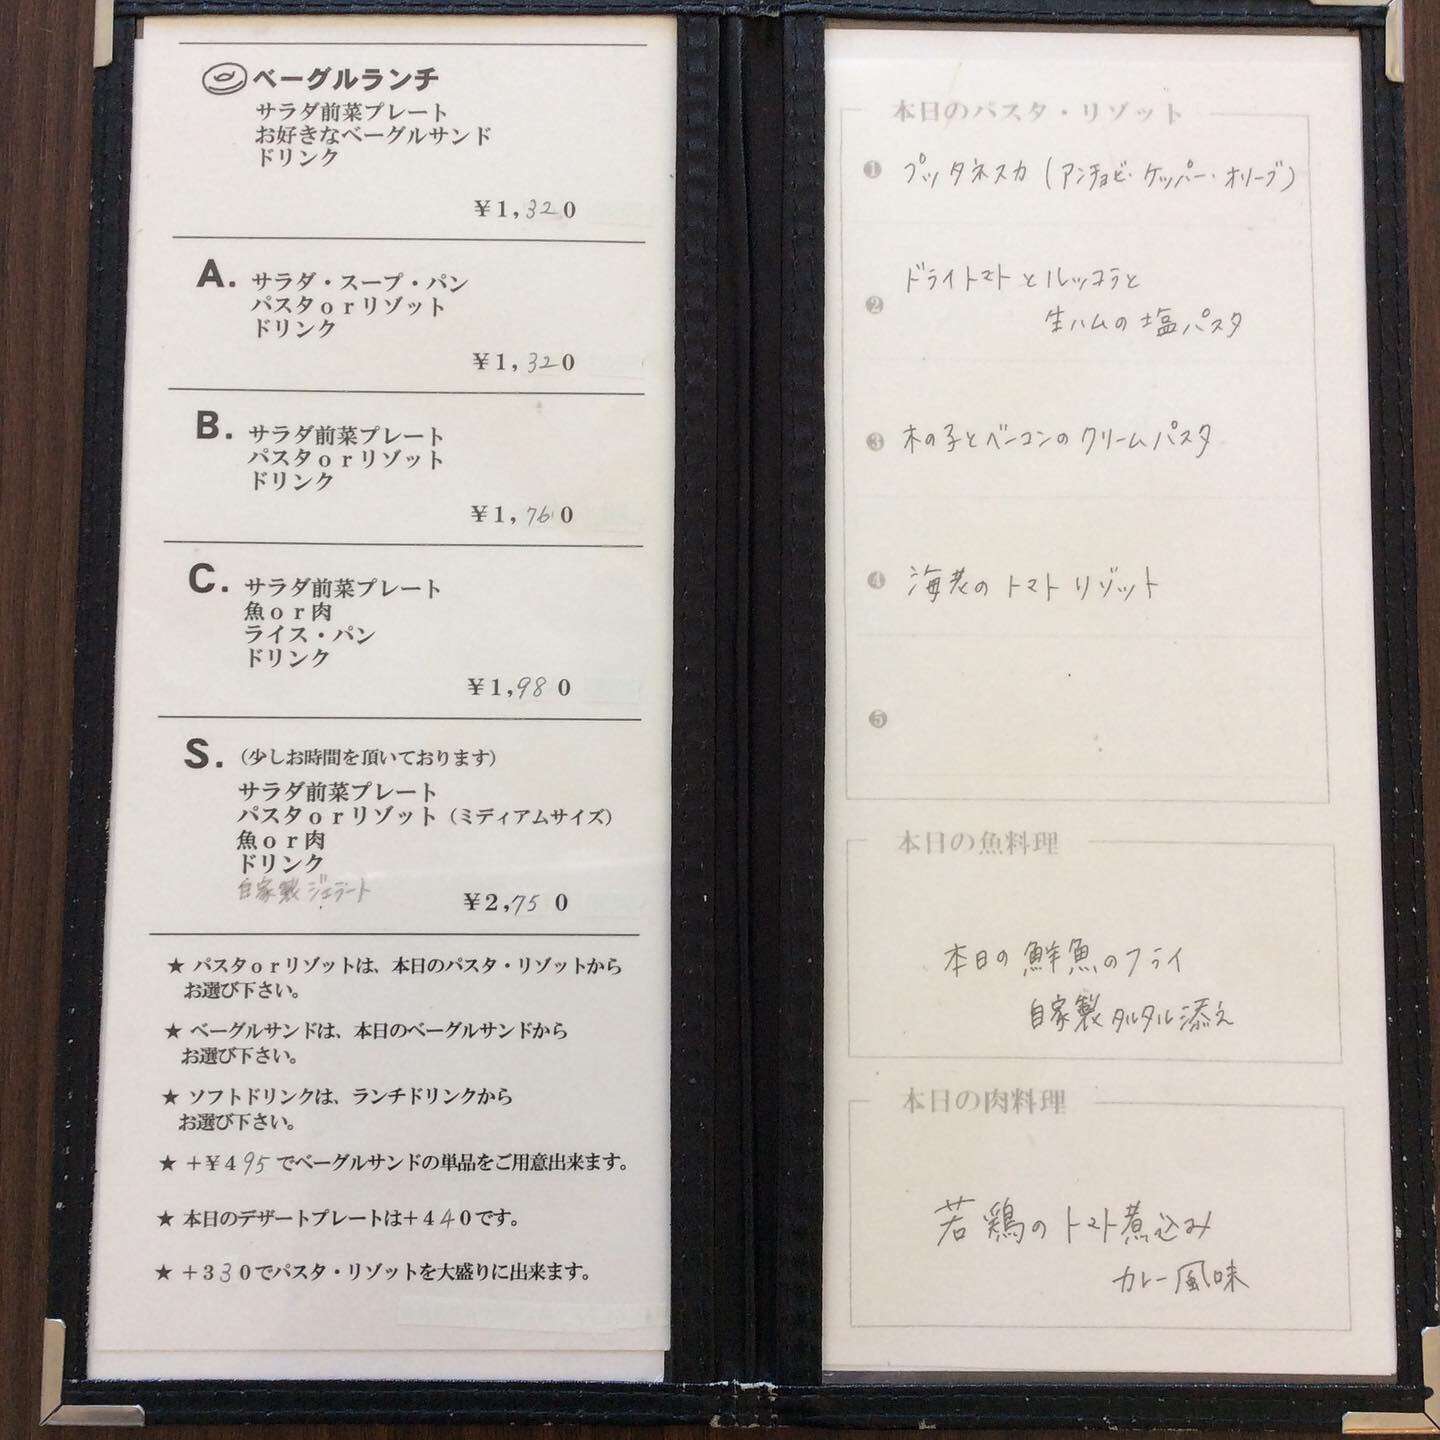 ベーグルランチ
サラダ前菜プレート
お好きなベーグルサンド
ドリンク
￥1,320
A. サラダ・スープ・パン
パスタorリゾット
ドリンク
￥1,320
B. サラダ前菜プレート
パスタorリゾット
ドリンク
￥1,760
C. サラダ前菜プレート
魚or肉
ライス・パン
ドリンク
￥1,980
S. (少しお時間を頂いております)
サラダ前菜プレート
パスタorリゾット(ミディアムサイズ)
魚or肉
ドリンク
自家製ジェラート
￥2,750
★ パスタorリゾットは、本日のパスタ・リゾットから
お選び下さい。
★ ベーグルサンドは、本日のベーグルサンドから
お選び下さい。
★ ソフトドリンクは、ランチドリンクから
お選び下さい。
★ +￥495でベーグルサンドの単品をご用意出来ます。
★ 本日のデザートプレートは+440です。
★ +330でパスタ・リゾットを大盛りに出来ます。
本日のパスタ・リゾット
❶ プッタネスカ(アンチョビ・ケッパー・オリーブ)
❷ ドライトマトとルッコラと
生ハムの塩パスタ
❸ 木の子とベーコンのクリームパスタ
❹ 海老のトマトリゾット
❺
本日の魚料理
本日の鮮魚のフライ
自家製タルタル添え
本日の肉料理
若鶏のトマト煮込み
カレー風味